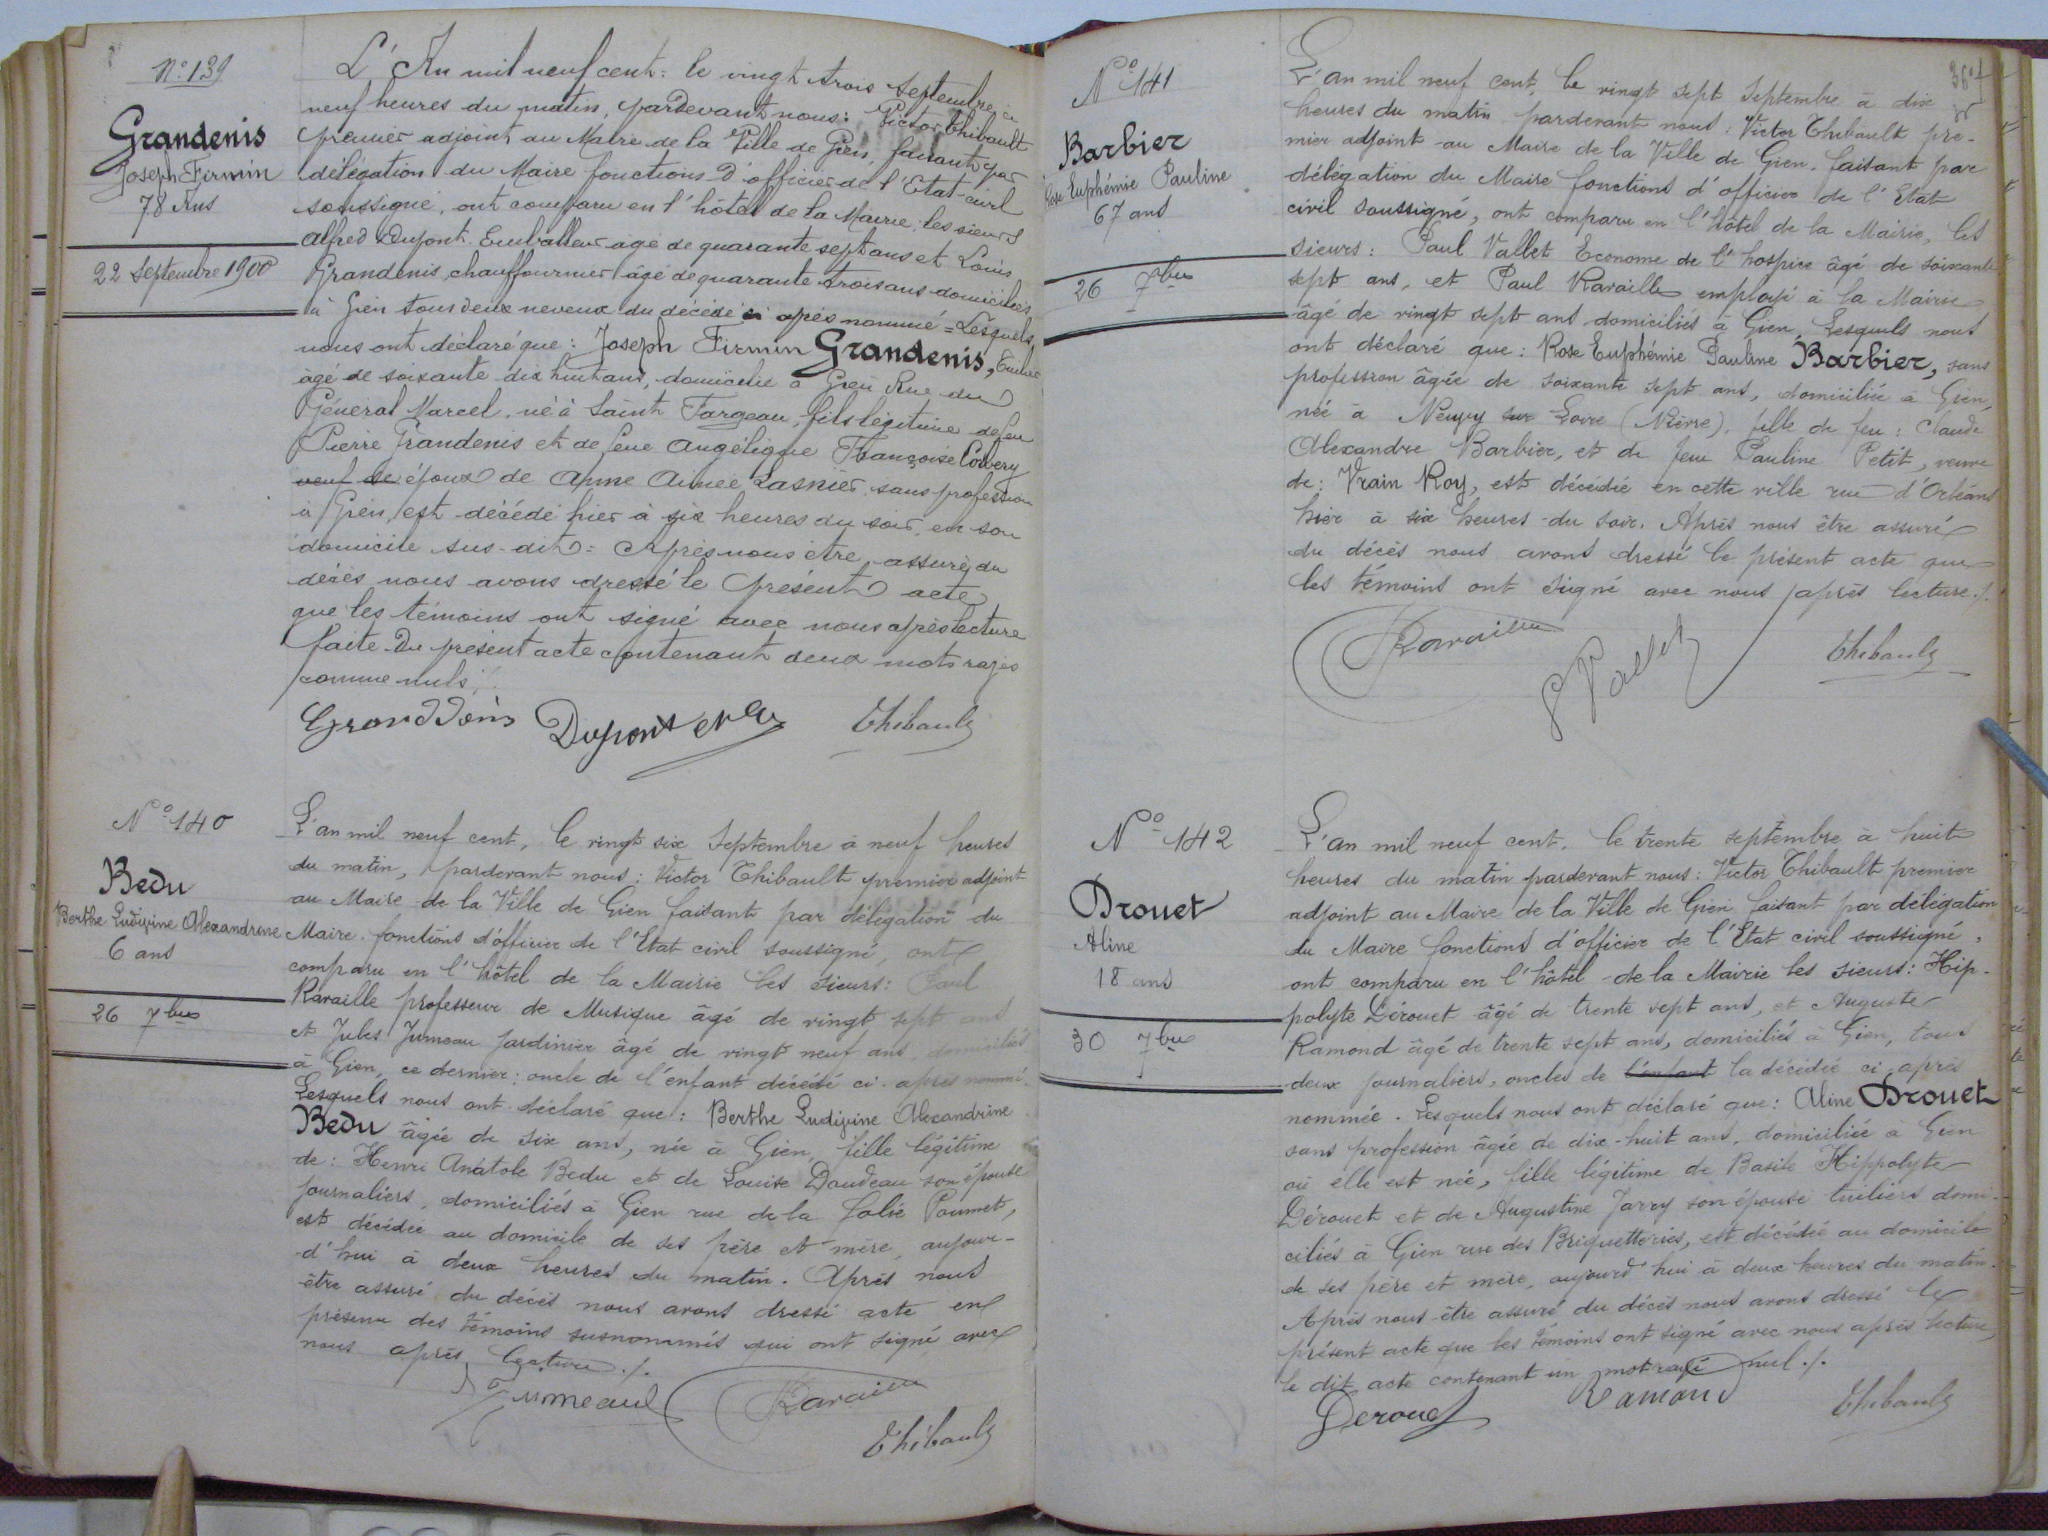 N° 139
Grandenis
Joseph Firmin
78 Ans
22 Septembre 1900
L'An mil neuf cent: le vingt trois Septembre à
neuf heures du matin, pardevant nous: Victor Thibault
premier adjoint au Maire de la Ville de Gien, faisant par
délégation du Maire fonctions d'officier de l'Etat-civil
soussigné, ont comparu en l'hôtel de la Mairie, les sieurs
Alfred Dupont Emballeur âgé de quarante sept ans et Louis
Grandenis, chauffournier âgé de quarante trois ans domiciliés
à Gien tous deux neveux du décédé ci après nommé = Lesquels
nous ont déclaré que: Joseph Firmin Grandenis,
âgé de soixante dix huit ans, domicilié à Gien Rue du
Général Marcel, né à Saint Fargeau, fils légitime de feu
Pierre Grandenis et de feue Angélique Françoise
veuf de époux de Anne Aimée Lasnier, sans profession
à Gien, est décédé hier à six heures du soir, en son
domicile sus-dit = Après nous être assuré du
décès nous avons dressé le présent acte
que les témoins ont signé avec nous après lecture
faite. Du présent acte contenant deux mots rayés
comme nuls.
Granddenis Dupont Thibault
N° 140
Bedu
Berthe Ludivine Alexandrine
6 ans
26 7bre
L'an mil neuf cent, le vingt six Septembre à neuf heures
du matin, pardevant nous: Victor Thibault premier adjoint
au Maire de la Ville de Gien faisant par délégation du
Maire fonctions d'officier de l'Etat civil soussigné, ont
comparu en l'hôtel de la Mairie les sieurs: Paul
Ravaille professeur de Musique âgé de vingt sept ans
et Jules Jumeau Jardinier âgé de vingt neuf ans, domiciliés
à Gien, ce dernier: oncle de l'enfant décédé ci-après nommé.
Lesquels nous ont déclaré que: Berthe Ludivine Alexandrine
Bedu âgée de six ans, née à Gien, fille légitime
de: Henri Anatole Bedu et de Louise Daudeau son épouse
journaliers, domiciliés à Gien rue de la folie Poumet,
est décédée au domicile de ses père et mère, aujour-
d'hui à deux heures du matin. Après nous
être assuré du décès nous avons dressé acte en
présence des témoins susnommés qui ont signé avec
nous après lecture ./.
Jumeau Ravaille
Thibault
N° 141
Barbier
Rose Euphémie Pauline
67 ans
26 7bre
L'an mil neuf cent, le vingt sept Septembre à dix
heures du matin pardevant nous: Victor Thibault pre-
mier adjoint au Maire de la Ville de Gien, faisant par
délégation du Maire fonctions d'officier de l'Etat
civil soussigné, ont comparu en l'hôtel de la Mairie, les
sieurs: Paul Vallet Econome de l'hospice âgé de soixante
sept ans, et Paul Ravaille employé à la Mairie
âgé de vingt sept ans domiciliés à Gien, Lesquels nous
ont déclaré que: Rose Euphémie Pauline Barbier, sans
profession âgée de soixante sept ans, domiciliée à Gien,
née à Neuvy sur Loire (Nièvre), fille de feu: Claude
Alexandre Barbier, et de feue Pauline Petit, veuve
de: Vrain Roy, est décédée en cette ville rue d'Orléans
hier à six heures du soir. Après nous être assuré
du décès nous avons dressé le présent acte que
les témoins ont signé avec nous après lecture ./.
Ravaille P Vallet Thibault
N° 142
Drouet
Aline
18 ans
30 7bre
L'an mil neuf cent, le trente septembre à huit
heures du matin pardevant nous: Victor Thibault premier
adjoint au Maire de la Ville de Gien faisant par délégation
du Maire fonctions d'officier de l'Etat civil soussigné,
ont comparu en l'hôtel de la Mairie les sieurs: Hip-
polyte Dérouet âgé de trente sept ans, et Auguste
Ramond âgé de trente sept ans, domiciliés à Gien, tous
deux journaliers, oncles de l'enfant la décédée ci après
nommée. Lesquels nous ont déclaré que: Aline Drouet
sans profession âgée de dix-huit ans, domiciliée à Gien
où elle est née, fille légitime de Basile Hippolyte
Dérouet et de Augustine Jarry son épouse tuiliers domi-
ciliés à Gien rue des Briquetteries, est décédée au domicile
de ses père et mère, aujourd'hui à deux heures du matin.
Après nous être assuré du décès nous avons dressé le
présent acte que les témoins ont signé avec nous après lecture,
le dit acte contenant un mot rayé nul ./.
Derouet Ramond Thibault